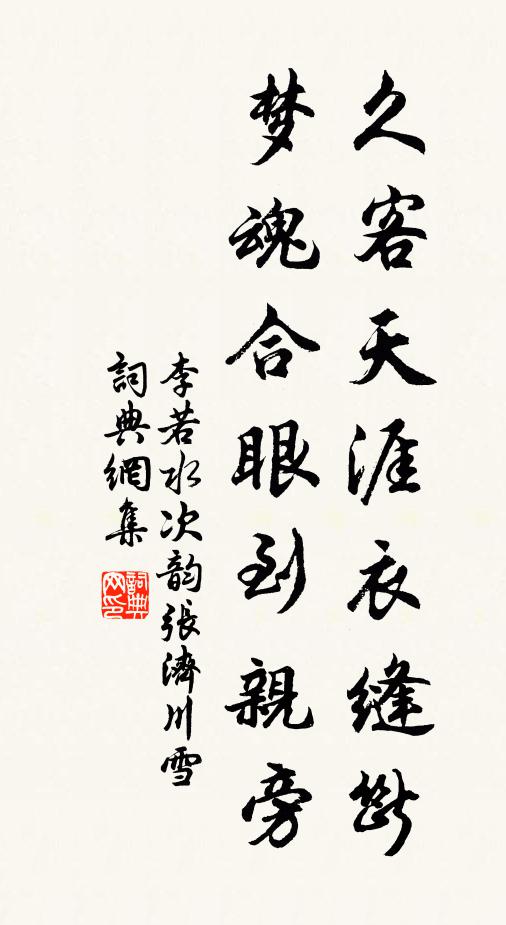 久客天涯衣缝断
梦魂合眼到親旁
李若水次韵張濟川雪
詞典網集
詞典网印